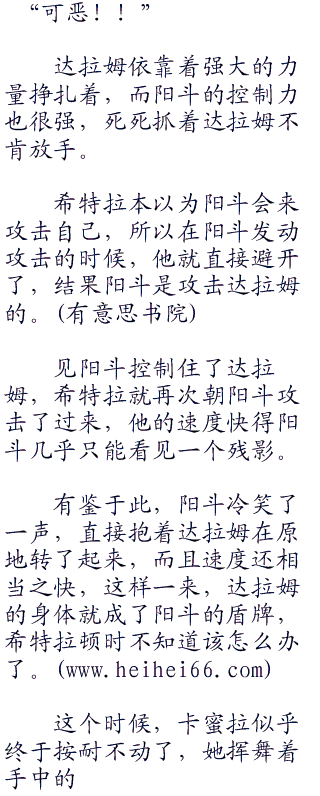 “可恶！！”
达拉姆依靠着强大的力
量挣扎着，而阳斗的控制力
也很强，死死抓着达拉姆不
肯放手。
希特拉本以为阳斗会来
攻击自己，所以在阳斗发动
攻击的时候，他就直接避开
了，结果阳斗是攻击达拉姆
的。(有意思书院)
见阳斗控制住了达拉
姆，希特拉就再次朝阳斗攻
击了过来，他的速度快得阳
斗几乎只能看见一个残影。
有鉴于此，阳斗冷笑了
一声，直接抱着达拉姆在原
地转了起来，而且速度还相
当之快，这样一来，达拉姆
的身体就成了阳斗的盾牌，
希特拉顿时不知道该怎么办
了。(www.heihei66.com)
这个时候，卡蜜拉似乎
终于按耐不动了，她挥舞着
手中的